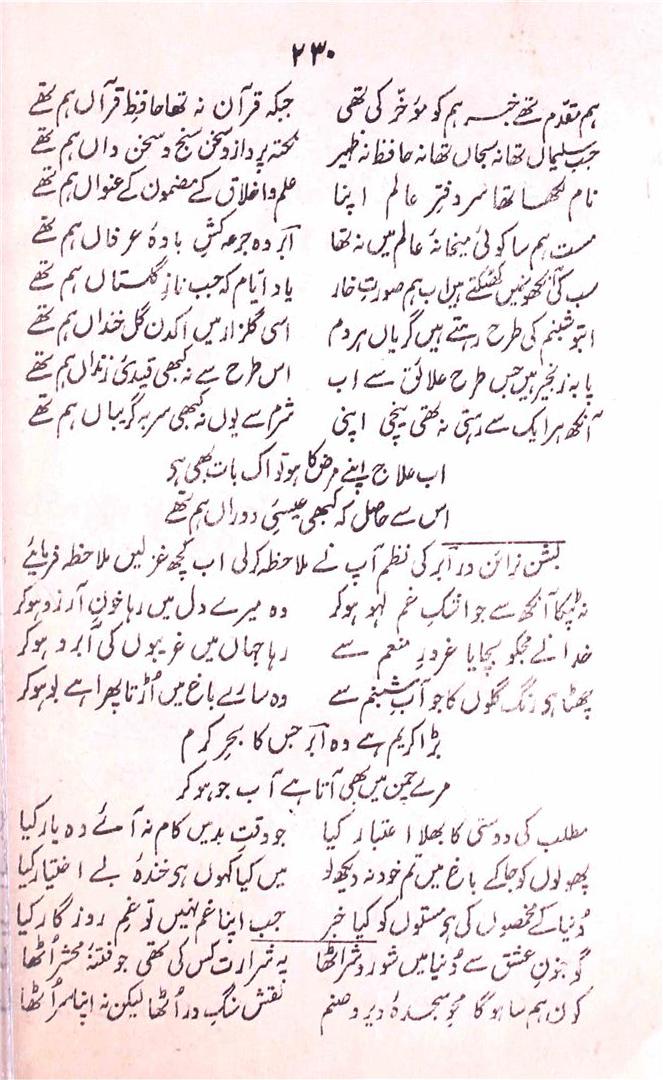 ۲۳۰
ہم مقدّم تھے خبر ہم کو مؤخّر کی تھی جبکہ قرآن نہ تھا حافظِ قرآں ہم تھے
جب سلیماں تھا نہ سحباں تھا نہ حافظ نہ ظہیر نکتہ پرداز و سخن سنج و سخن داں ہم تھے
نام لکھا تھا سرِ دفترِ عالم اپنا علم و اخلاق کے مضمون کے عنواں ہم تھے
مست ہم سا کوئی میخانۂ عالم میں نہ تھا ابرؔ وہ جرعہ کشِ بادۂ عرفاں ہم تھے
سب کی آنکھوں میں کھٹکتے ہیں اب ہم صورتِ خار یاد ایّام کہ جب نازِ گلستاں ہم تھے
اب تو شبنم کی طرح رہتے ہیں گریاں ہر دم اسی گلزار میں اکدن گلِ خنداں ہم تھے
پا بہ زنجیر ہیں جس طرح علائق سے اب اس طرح سے نہ کبھی قیدیٔ زنداں ہم تھے
آنکھ ہر ایک سے رہتی نہ تھی نیچی اپنی شرم سے یوں نہ کبھی سر بہ گریباں ہم تھے
اب علاج اپنے مرض کا ہو تو اک بات بھی ہو
اس سے حاصل کہ کبھی عیسیِٔ دوراں ہم تھے
بشن نرائن در ابرؔ کی نظم آپ نے ملاحظہ کر لی اب کچھ غزلیں ملاحظہ فرمایئے
نہ ٹپکا آنکھ سے جو اشکِ غم لہو ہو کر وہ میرے دل میں رہا خونِ آرزو ہو کر
خدا نے مجکو بچایا غرورِ منعم سے رہا جہاں میں غریبوں کی آبرو ہو کر
پھٹا ہی رنگ گلوں کا جو آبِ شبنم سے وہ سارے باغ میں اُڑتا پھرا ہے بو ہو کر
بڑا کریم ہے وہ ابرؔ جس کا بحرِ کرم
مرے چمن میں بھی آتا ہے آب جو ہو کر
مطلب کی دوستی کا بھلا اعتبار کیا جو وقتِ بد میں کام نہ آئے وہ یار کیا
پھولوں کو جا کے باغ میں تم خود نہ دیکھ لو میں کیا کہوں ہی خندۂ بے اختیار کیا
دُنیا کے مخمصوں کی ہی مستوں کو کیا خبر جب اپنا غم نہیں تو غمِ روزگار کیا
گو جنونِ عشق سے دُنیا میں شور و شر اٹھا یہ شرارت کس کی تھی جو فتنۂ محشر اُٹھا
کون ہم سا ہو گا محوِ سجدۂ دیر و صنم نقش سنگِ در اُٹھا لیکن نہ اپنا سر اُٹھا